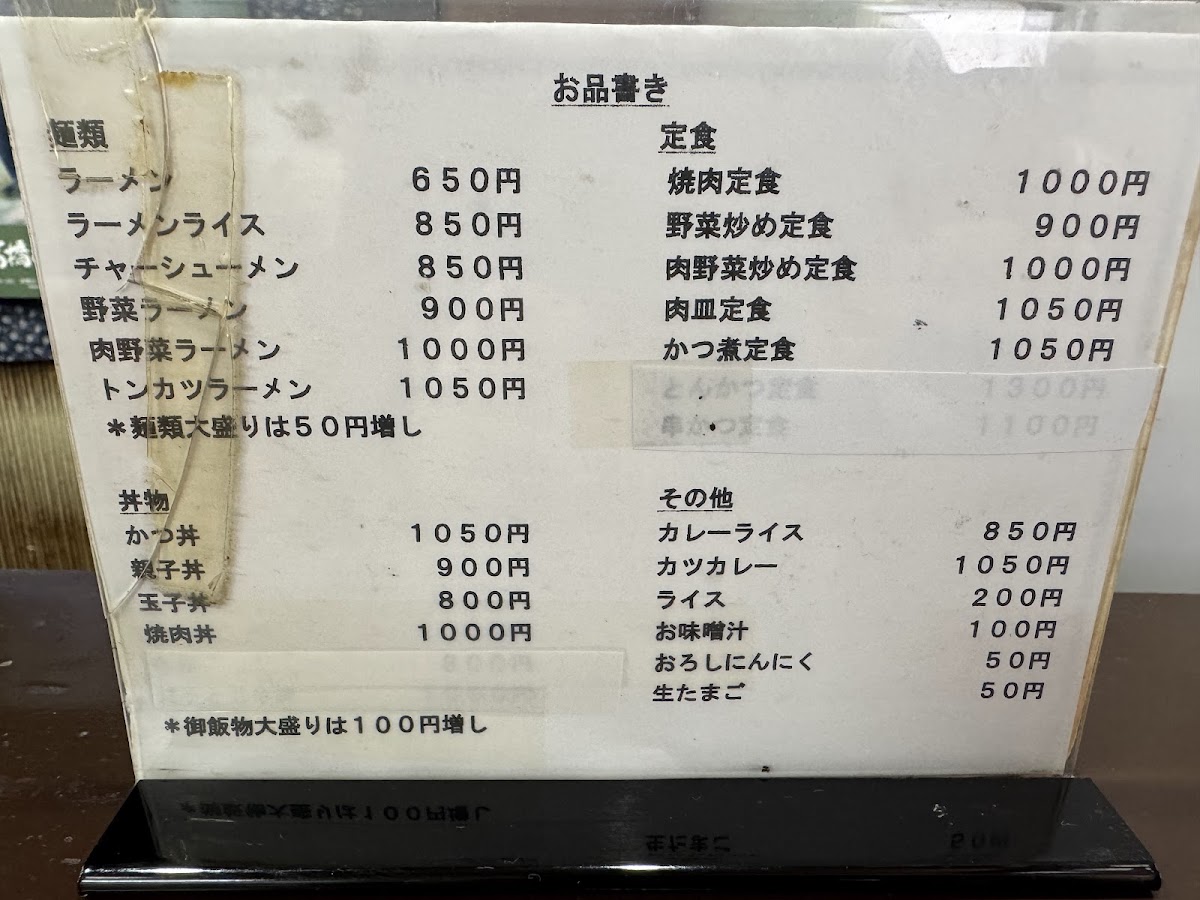 お品書き
麺類
ラーメン 650円
ラーメンライス 850円
チャーシューメン 850円
野菜ラーメン 900円
肉野菜ラーメン 1000円
トンカツラーメン 1050円
＊麺類大盛りは50円増し
丼物
かつ丼 1050円
親子丼 900円
玉子丼 800円
焼肉丼 1000円
800円
＊御飯物大盛りは100円増し
定食
焼肉定食 1000円
野菜炒め定食 900円
肉野菜炒め定食 1000円
肉皿定食 1050円
かつ煮定食 1050円
とんかつ定食 1300円
串かつ定食 1100円
その他
カレーライス 850円
カツカレー 1050円
ライス 200円
お味噌汁 100円
おろしにんにく 50円
生たまご 50円